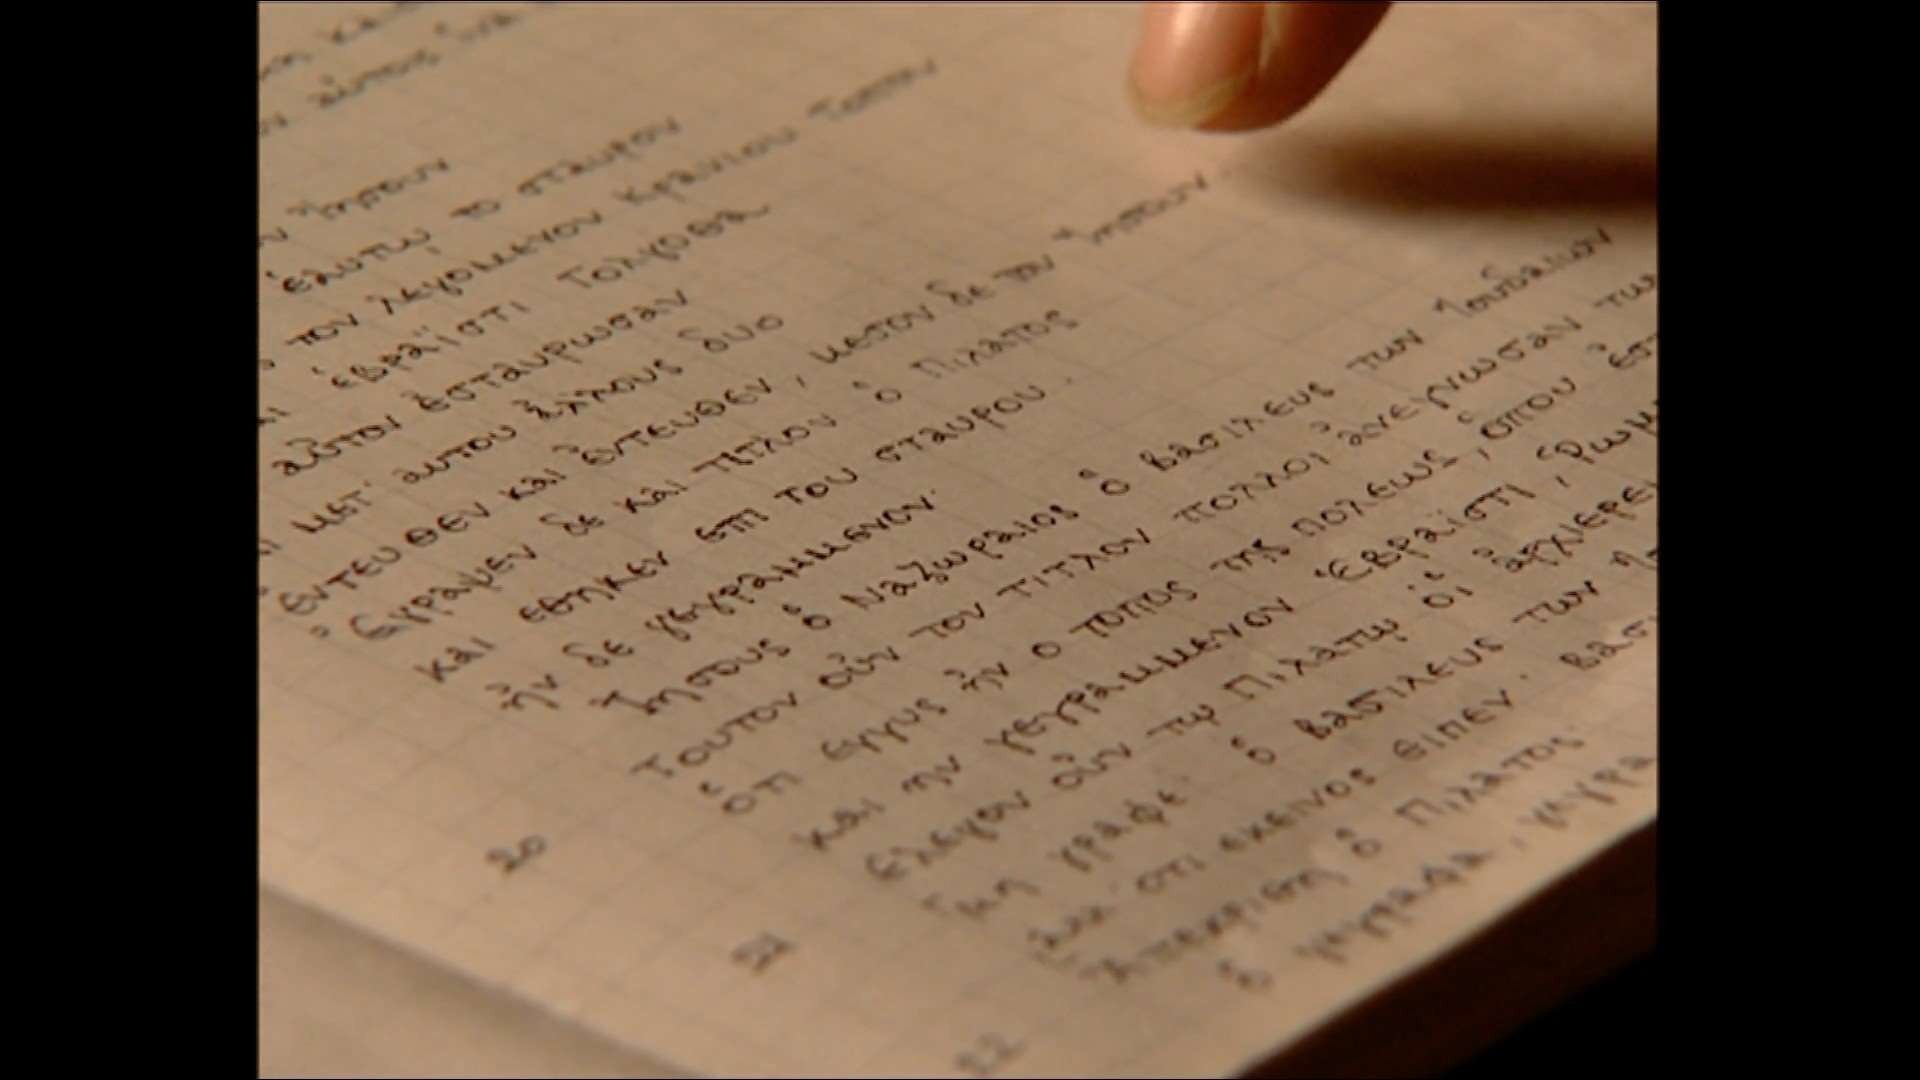 αὐτος ἱνα
Ἰησουν
ἐλυπῳ το σταυρον
τον λεγομενον Κρανιου Τοπον
ἑβραϊστι Γολγοθα
αὐτον ἐσταυρωσαν
μετ' αυτου ἀλλους δυο
ἐντευθεν και ἐντευθεν, μεσον δε τον Ἰησουν.
Ἐγραψεν δε και τιτλον ὁ Πιλατος
και εθηκεν επι του σταυρου.
ἠν δε γεγραμμενον·
Ἰησους ὁ Ναζωραιος ὁ βασιλευς των Ἰουδαιων
20 Τουτον οὐν τον τιτλον πολλοι ἀνεγνωσαν των
ὁτι εγγυς ἠν ο τοπος της πολεως, ὁπου ἐστ
και ην γεγραμμενον Ἑβραϊστι, Ῥωμ
21 ελεγον οὐν τῳ Πιλατῳ οἱ ἀρχιερει
μη γραφε· ὁ βασιλευς των Ἰο
ἀλλ' οτι εκεινος ειπεν· βασι
22 Ἀπεκριθη ὁ Πιλατος·
ὁ γεγραφα, γεγρα